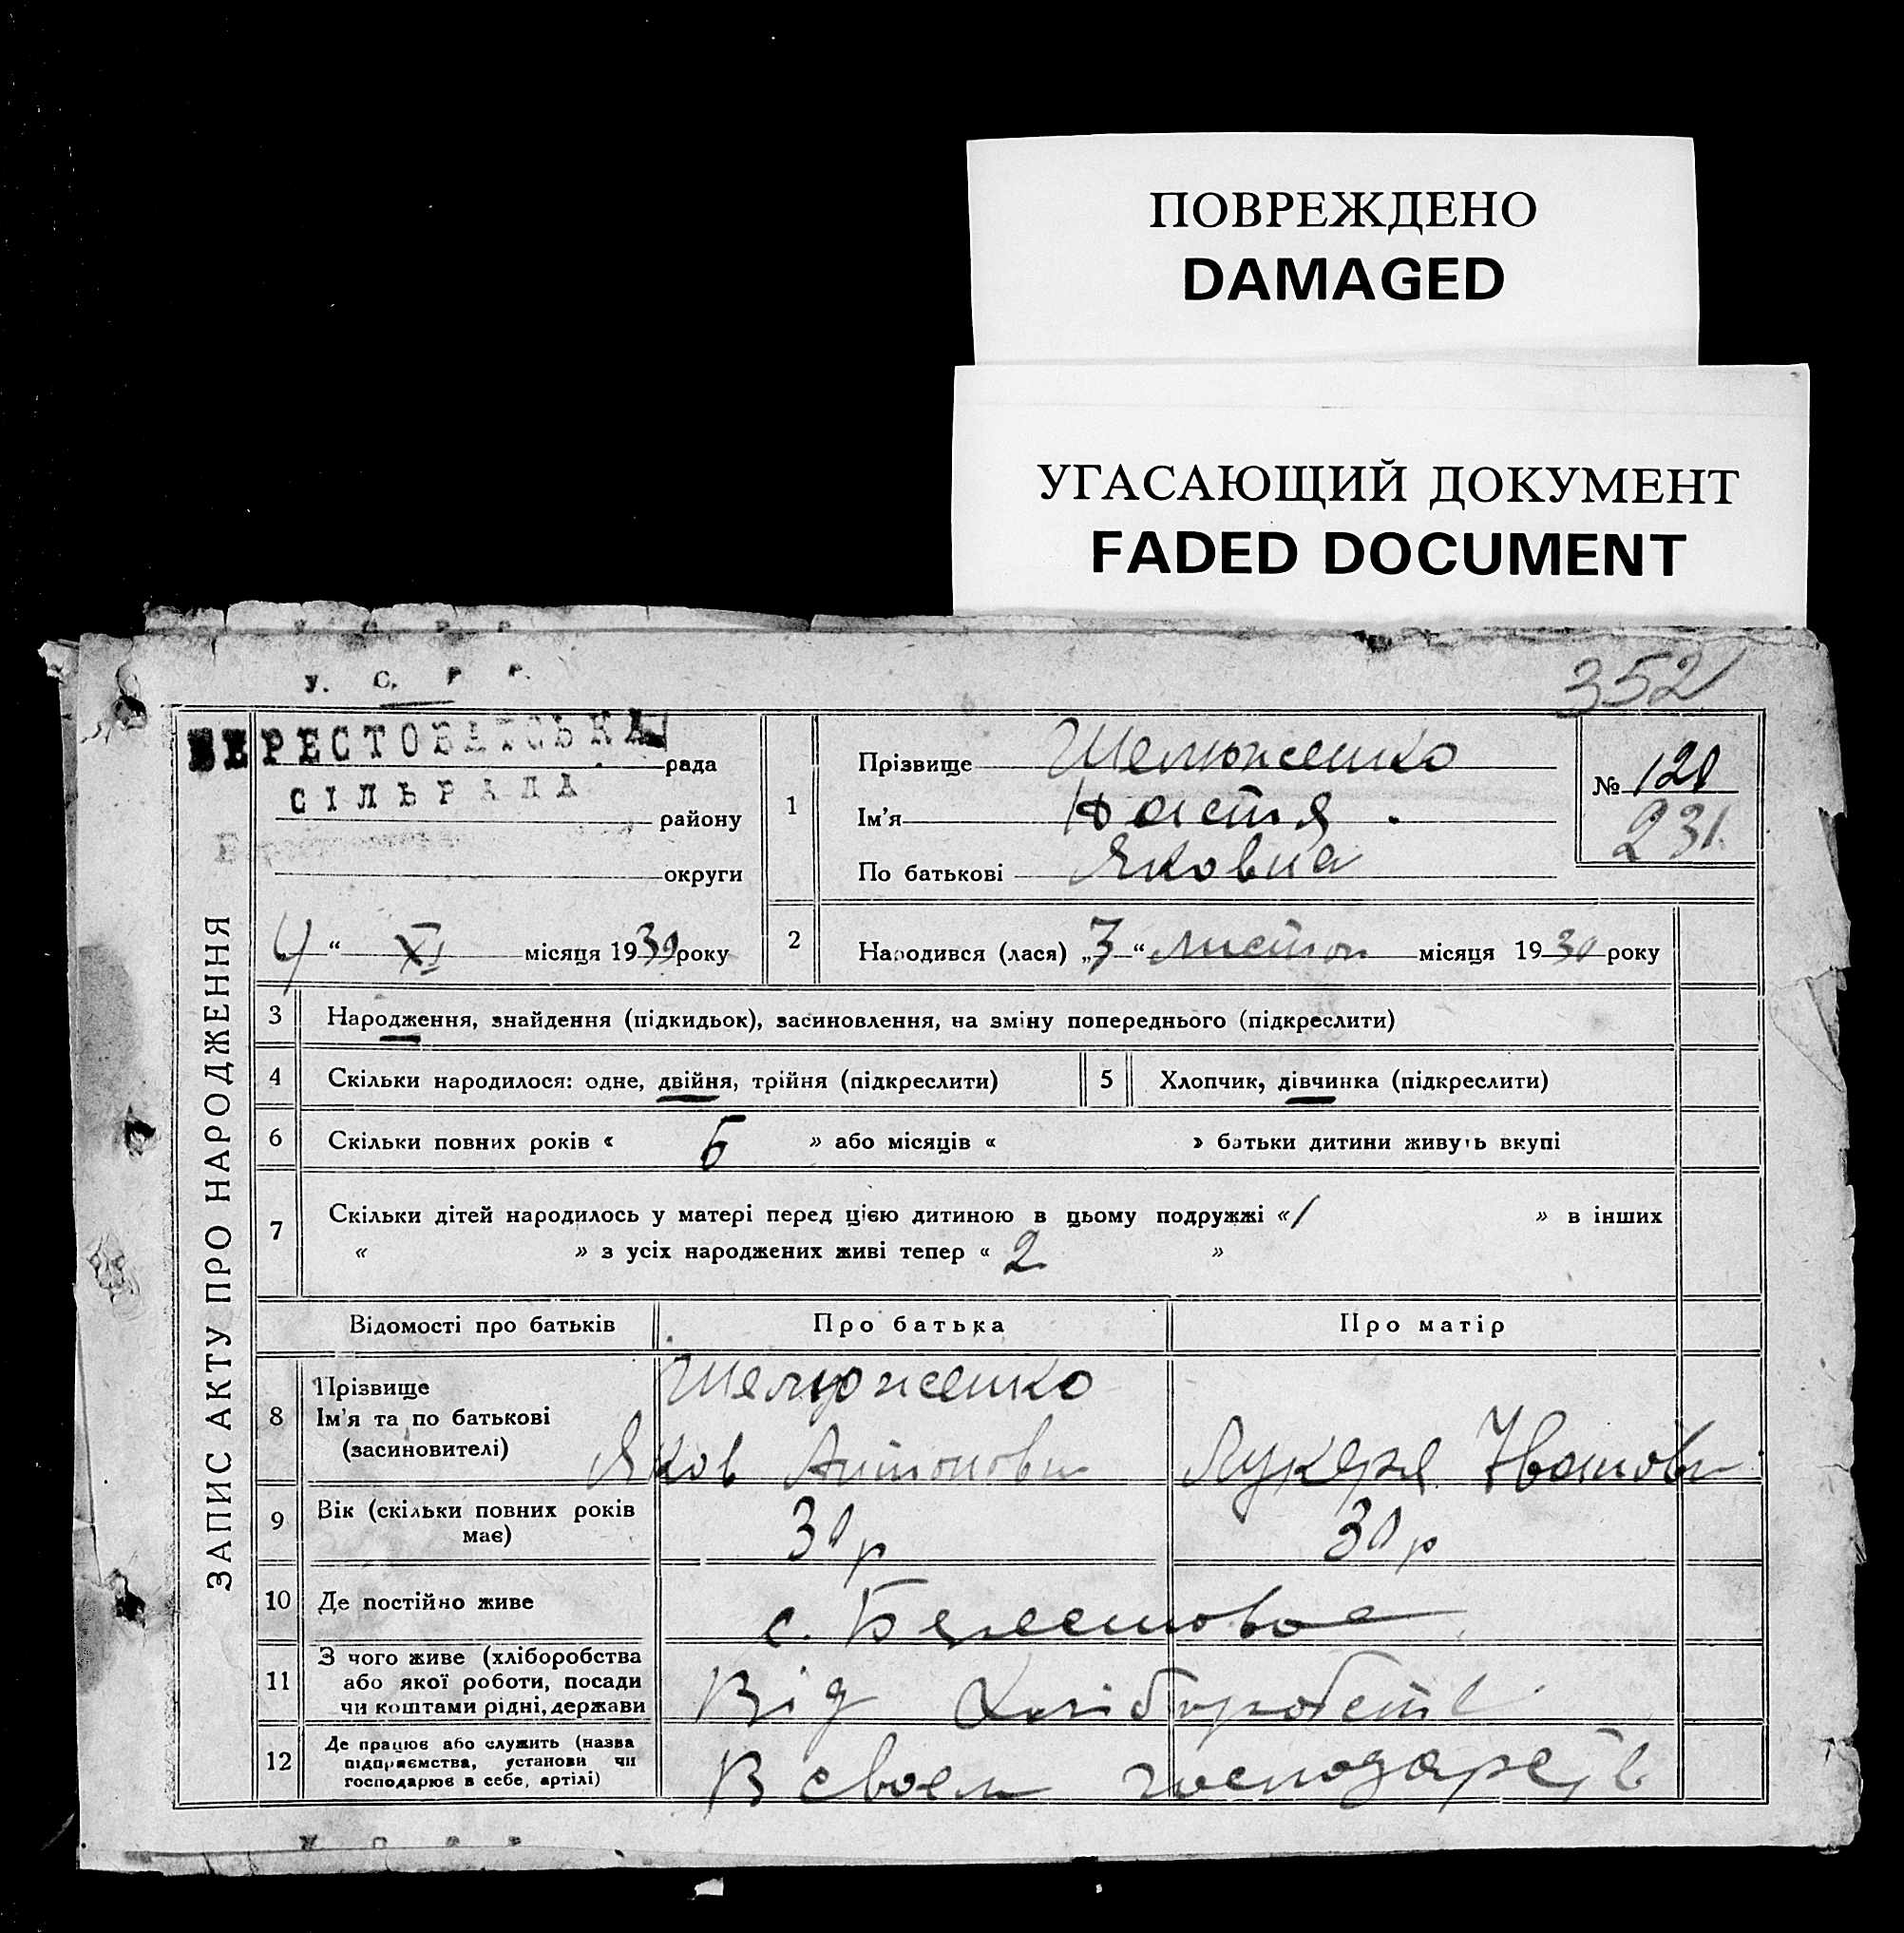 ПОВРЕЖДЕНО
DAMAGED
УГАСАЮЩИЙ ДОКУМЕНТ
FADED DOCUMENT
352
У. С. Р. Р.
БЕРЕСТОВАТСЬКА рада
СІЛЬРАДА
району
округи
4 " XI місяця 1930 року
ЗАПИС АКТУ ПРО НАРОДЖЕННЯ
1 Прізвище Шелюженко
Ім'я Настя
По батькові Яковна
№ 128
231
2 Народився (лася) „3" листоп місяця 1930 року
3 Народження, знайдення (підкидьок), засиновлення, на зміну попереднього (підкреслити)
4 Скільки народилося: одне, двійня, трійня (підкреслити) 5 Хлопчик, дівчинка (підкреслити)
6 Скільки повних років « 5 » або місяців « » батьки дитини живуть вкупі
7 Скільки дітей народилось у матері перед цією дитиною в цьому подружжі « 1 » в інших
« » з усіх народжених живі тепер « 2 »
Відомості про батьків Про батька Про матір
8 Прізвище Шелюженко
Ім'я та по батькові
(засиновителі) Яков Антонови Лукеря Іванов
9 Вік (скільки повних років
має) 30 р 30 р
10 Де постійно живе с. Берестовое
11 З чого живе (хліборобства
або якої роботи, посади
чи коштами рідні, держави Від Хліборобств
12 Де працює або служить (назва
підприємства, установи чи
господарює в себе, артілі) В своем господарств